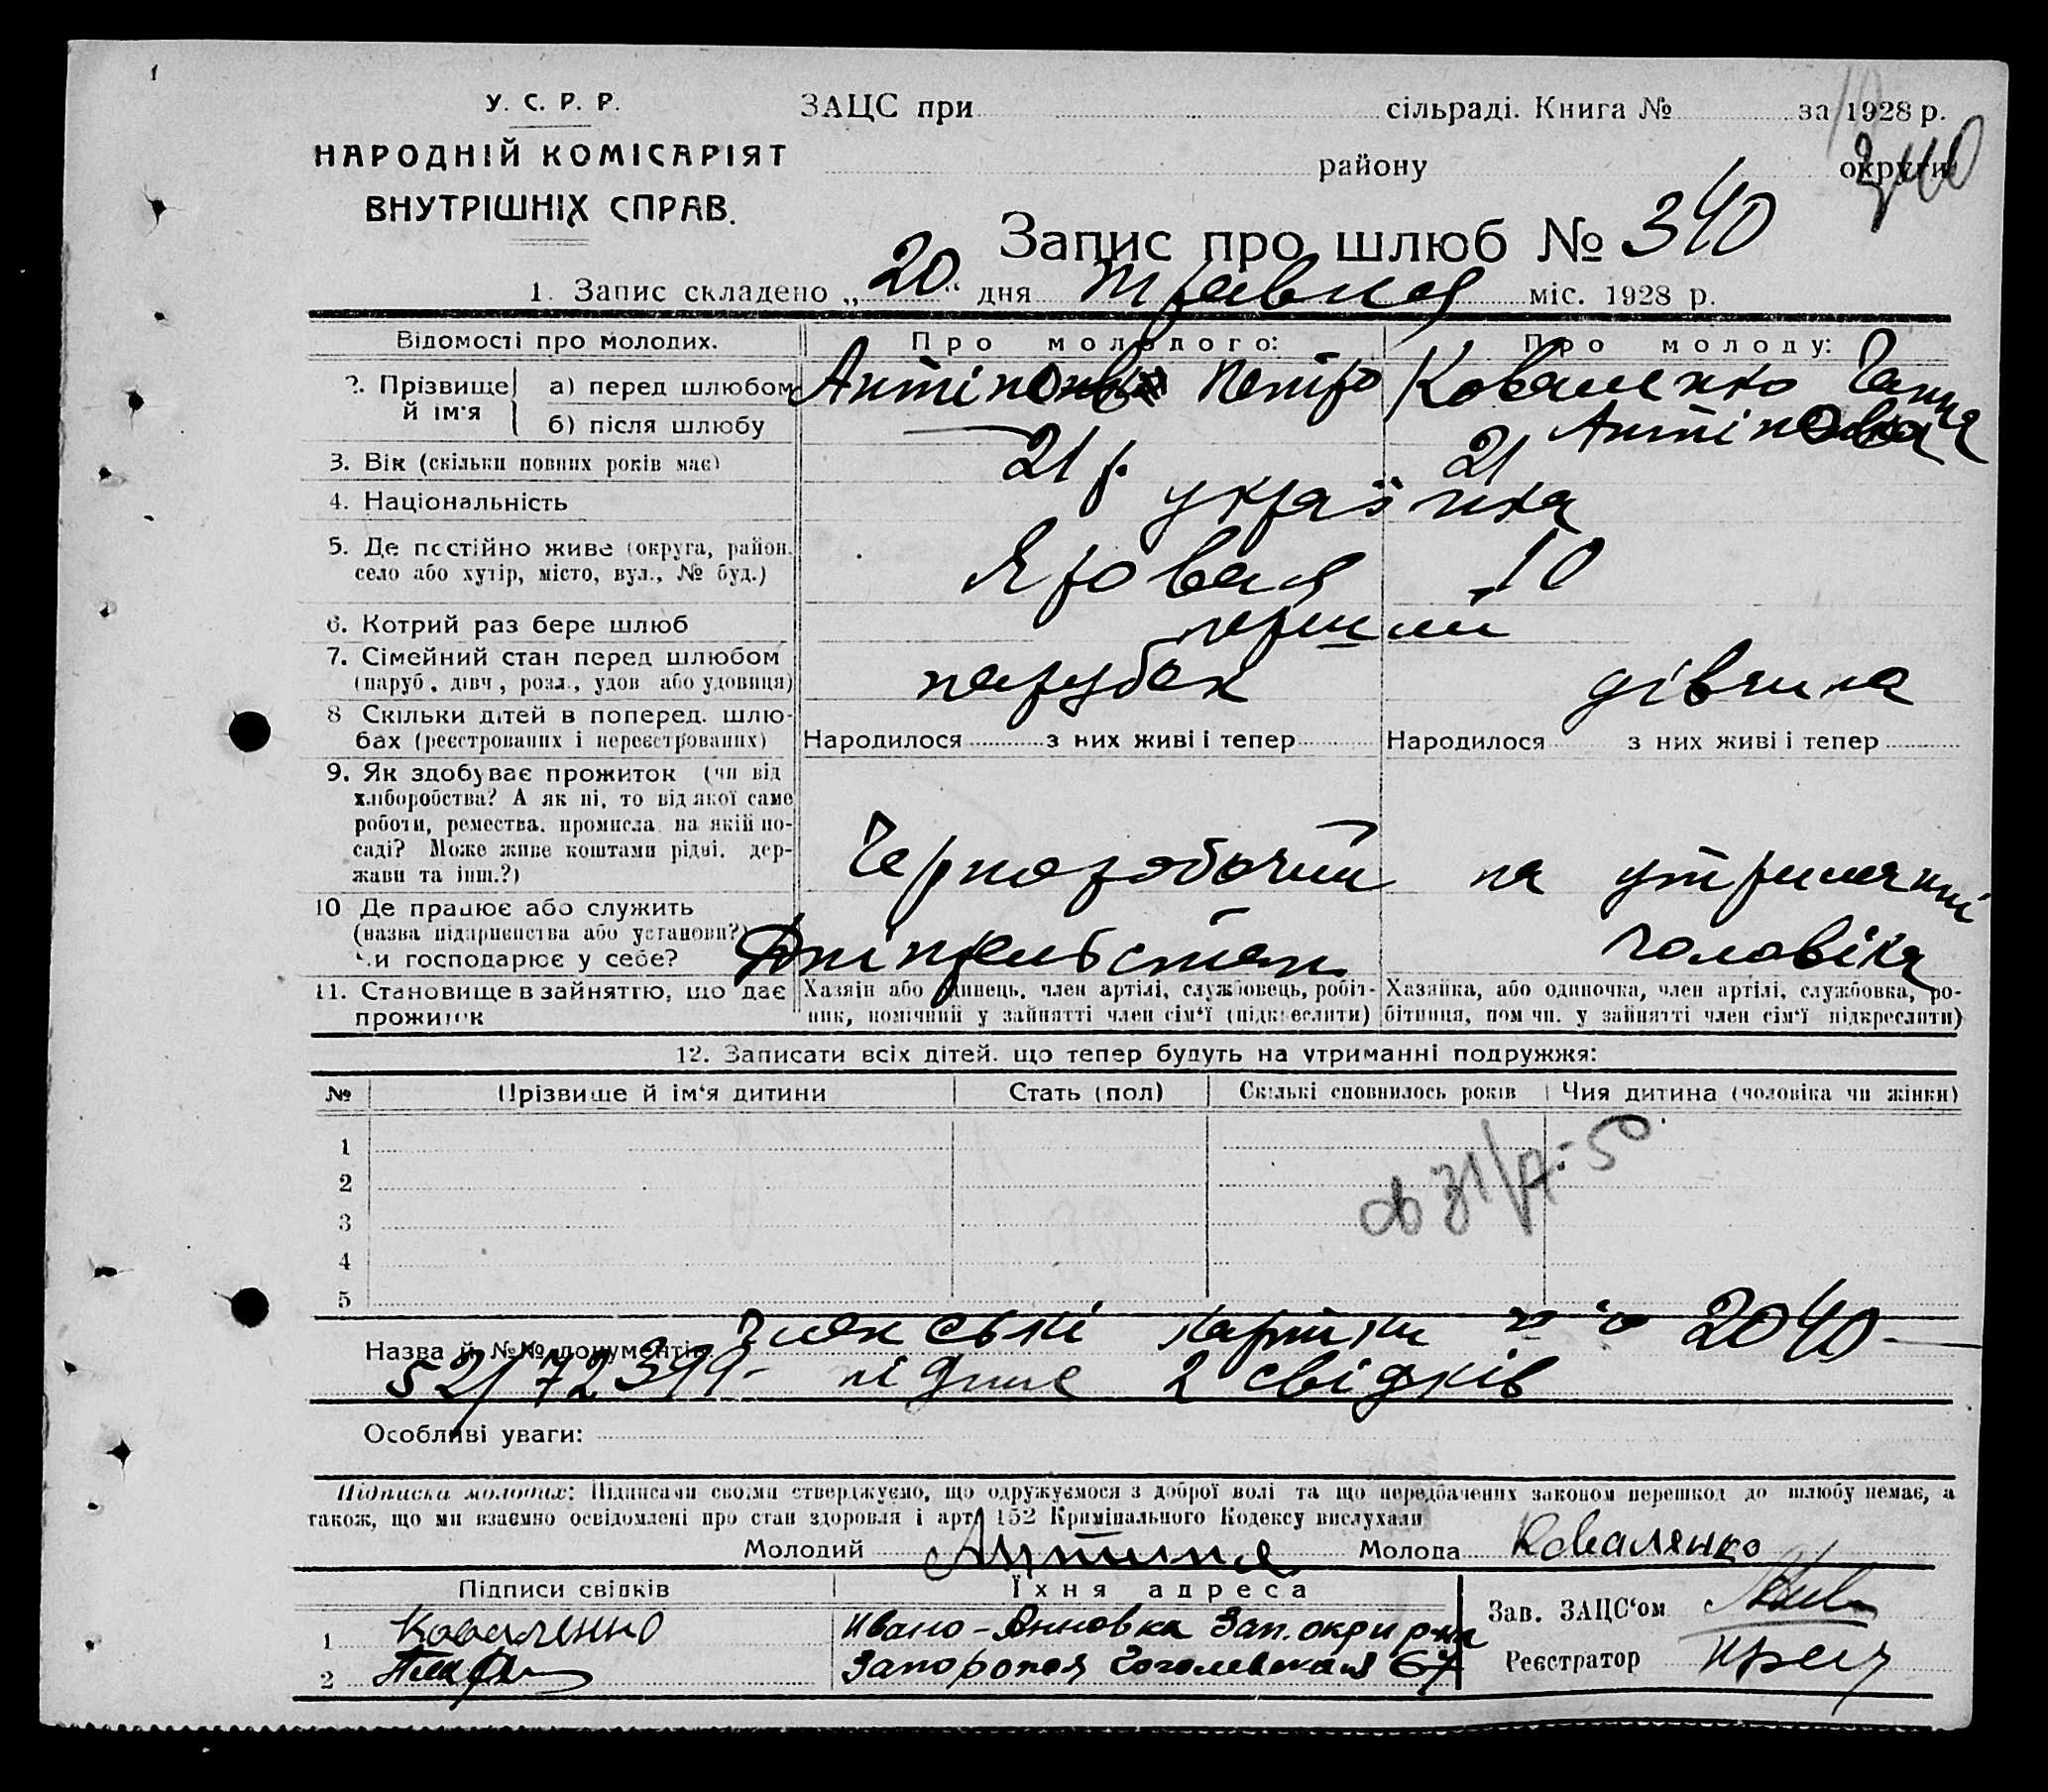 У. С. Р. Р.
НАРОДНІЙ КОМІСАРІЯТ
ВНУТРІШНІХ СПРАВ.
ЗАЦС при сільраді. Книга № за 1928 р.
району округи
340
Запис про шлюб № 340
1. Запис складено „20“ дня травня міс. 1928 р.
Відомості про молодих. Про молодого: Про молоду:
2. Прізвище й ім'я а) перед шлюбом Петро Коваленко Ганна
б) після шлюбу — Антіпова
3. Вік (скільки повних років має) 21 р. 21
4. Національність українка
5. Де постійно живе (округа, район, село або хутір, місто, вул., № буд.) Яровая 10
6. Котрий раз бере шлюб перший
7. Сімейний стан перед шлюбом (паруб., дівч., розл., удов. або удовиця) парубок дівчина
8 Скільки дітей в поперед. шлюбах (реєстрованих і нереєстрованих) Народилося з них живі і тепер Народилося з них живі і тепер
9. Як здобуває прожиток (чи від хліборобства? А як ні, то від якої саме роботи, ремества, промисла, на якій посаді? Може живе коштами рідні, держави та інш.?) Чернорабочий на утриманні
10 Де працює або служить (назва підприємства або установи?) Чи господарює у себе? Дніпрельстан чоловіка
11. Становище в зайняттю, що дає прожиток Хазяїн або одинець, член артілі, службовець, робітник, помічний у зайнятті член сім'ї (підкреслити) Хазяйка, або одиночка, член артілі, службовка, робітниця, пом чн. у зайнятті член сім'ї підкреслити)
12. Записати всіх дітей, що тепер будуть на утриманні подружжя:
№ Прізвище й ім'я дитини Стать (пол) Скількі сповнилось років Чия дитина (чоловіка чи жінки)
1
2
3
4
5
Назва й №№ документів членські картки 2040 —
52/72399 - 2 свідків
Особливі уваги:
Підписка молодих: Підписами своїми стверджуємо, що одружуємося з доброї волі та що передбачених законом перешкод до шлюбу немає, а
також, що ми взаємно освідомлені про стан здоровля і арт. 152 Кримінального Кодексу вислухали
Молодий Молода Коваленко
Підписи свідків Їхня адреса
1 Коваленко Ивано-Анновка Зап. окр.
2 Запорожья Гоголевская 67
Зав. ЗАЦС'ом
Реєстратор